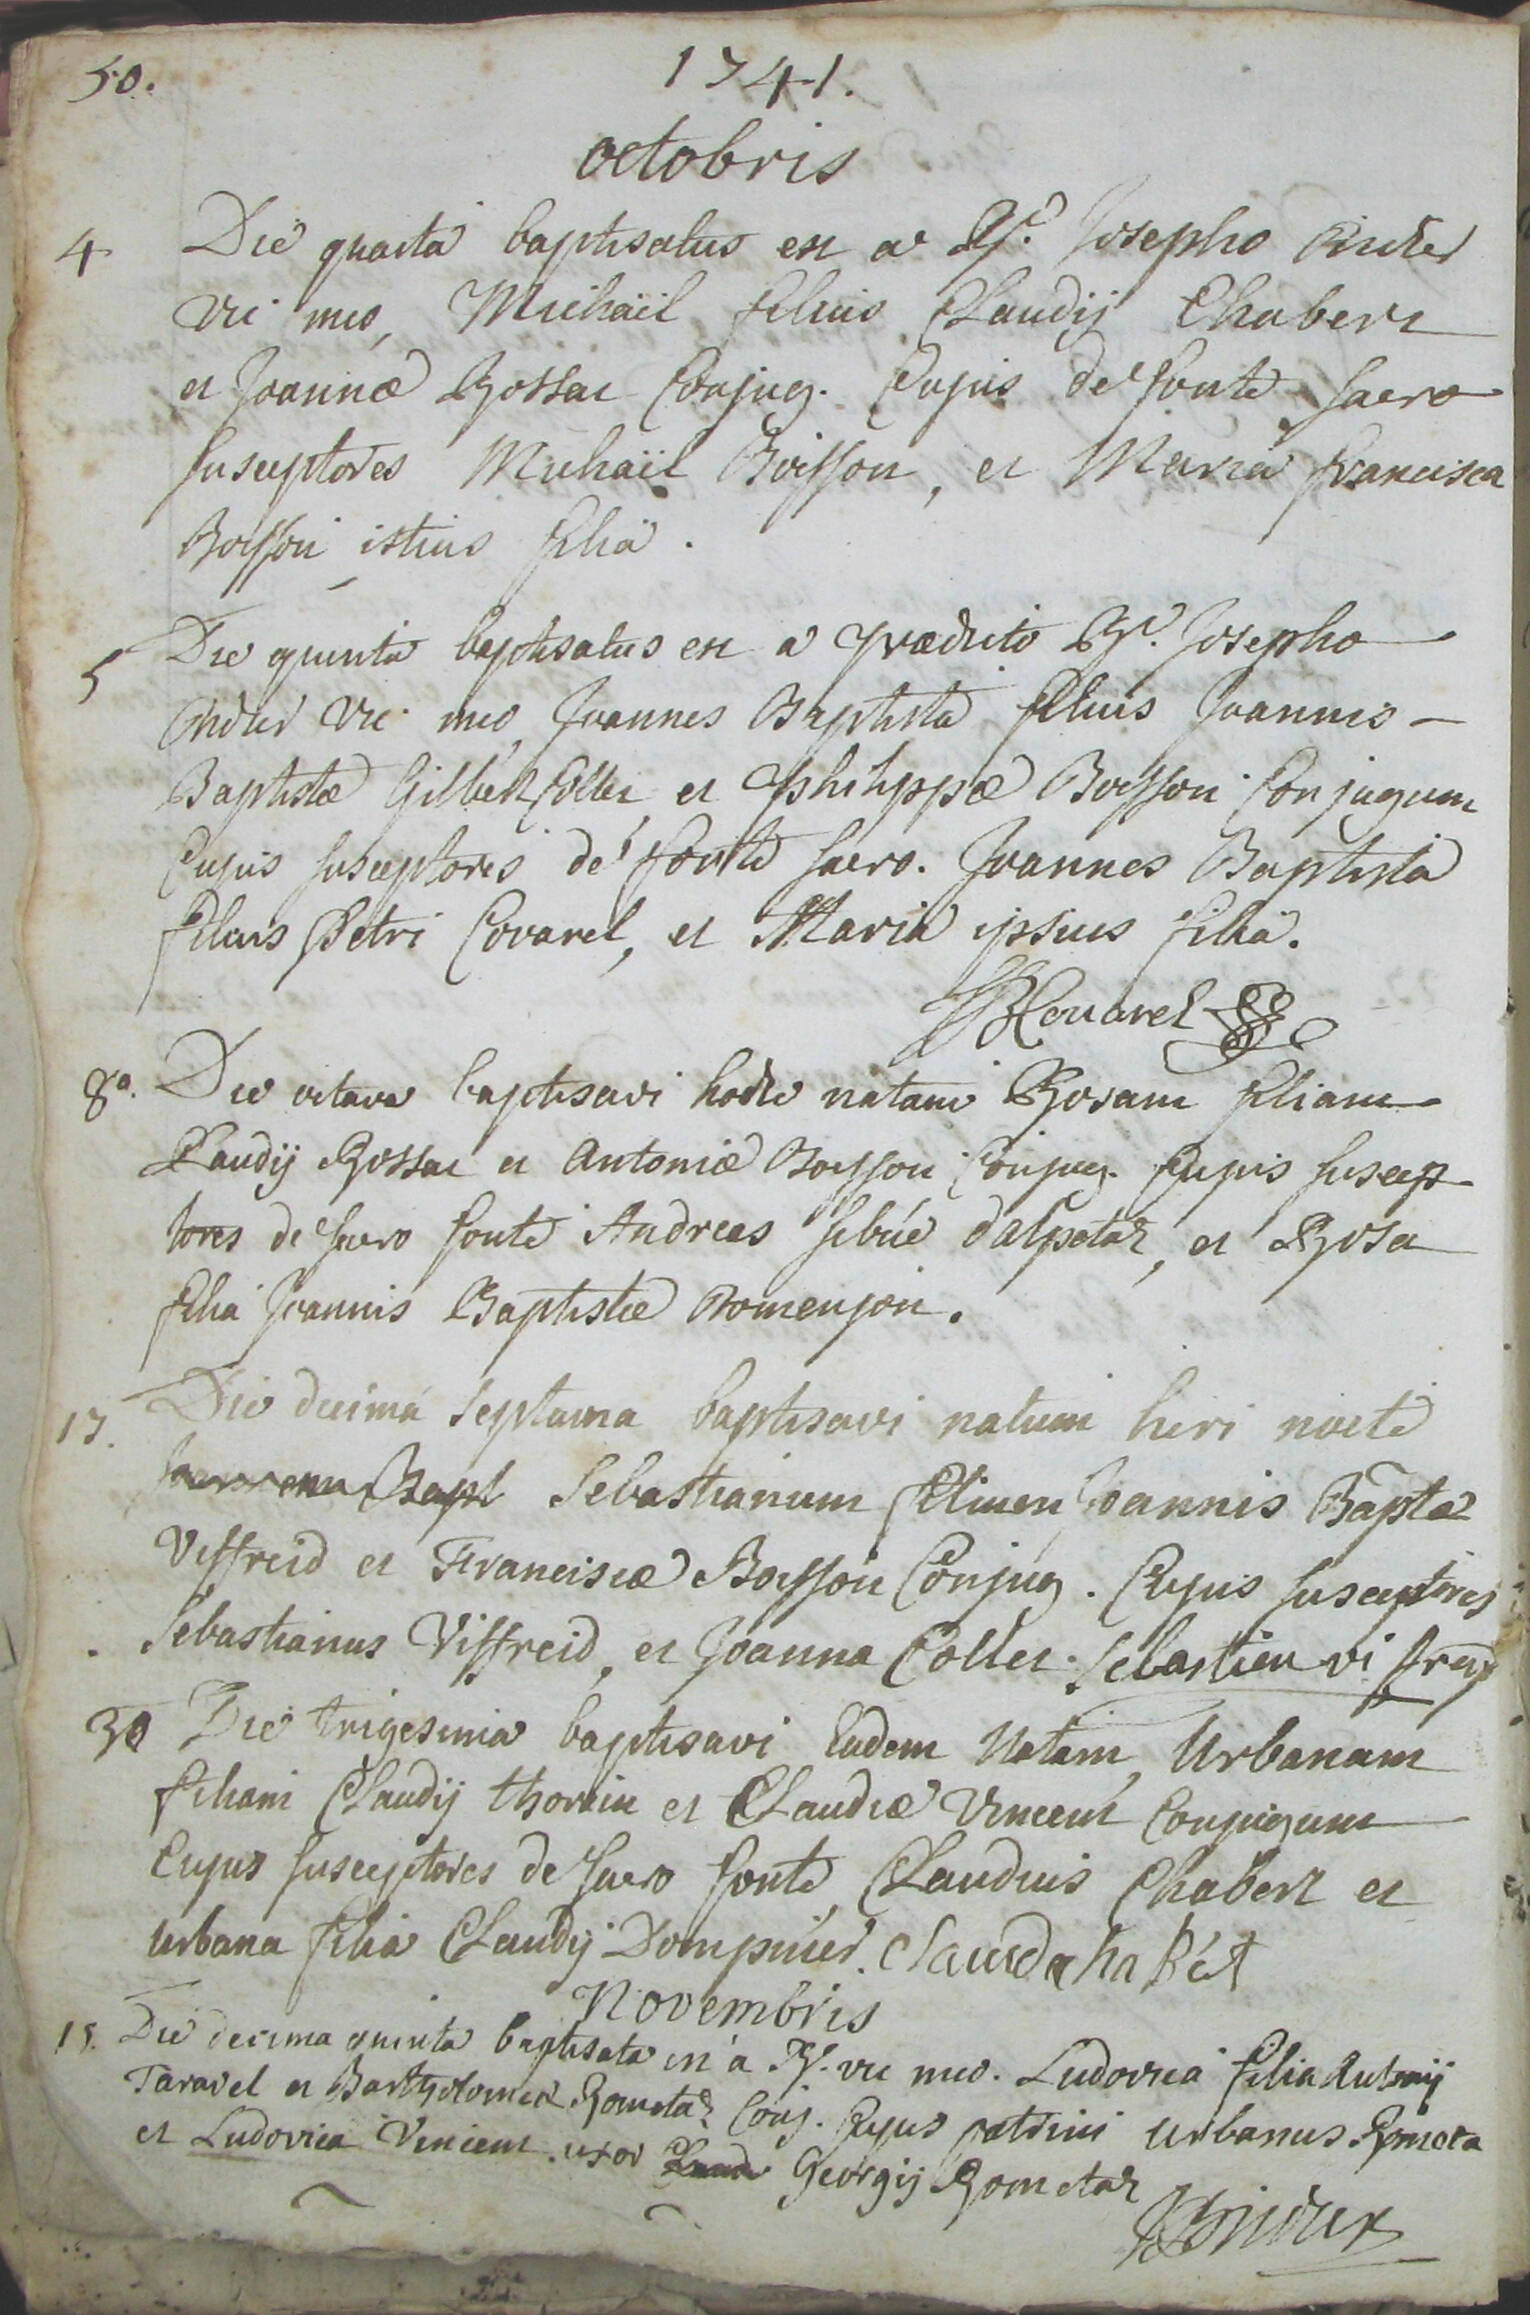 50.
1741.
octobris
4 Die quarta baptisatus est a Rd. Josepho
vic meo, Michaël filius Claudij Chabert
et Joannæ Rossat Conjug. Cujus de fonte sacro
susceptores Michaël Boisson, et Maria francisca
Boisson istius filia.
5 Die quinta baptisatus est a prædicto Rd. Josepho
vic meo, Joannes Baptista filius Joannis
Baptistæ Gilbert Collet, et philippæ Boisson Conjugum
Cujus susceptores de fonte sacro. Joannes Baptista
filius Petri Covarel, et Maria ipsius filia.
JB Couarel
8a. Die octava baptisavi hodie natam Rosam filiam
Claudij Rossat et Antoniæ Boisson Conjug. Cujus suscep
tores de sacro fonte Andreas sibüe dalpetaz, et Rosa
filia Joannis Baptistæ Romenjon.
17. Die decima septama baptisavi natum heri nocte
Joannem Bapt Sebastianum filium Joannis Baptæ
Viffreid et Franciscæ Boisson Conjug. Cujus susceptores
Sebastianus Viffreid, et Joanna Collet. sebastien vi freyd
30 Die trigesima baptisavi Eadem Natam Urbanam
filiam Claudij thorain et Claudiæ Vincent Conjugum
Cujus susceptores de sacro fonte, Claudius Chabert et
urbana filia Claudij Dompnier. Claud cha bét
Novembris
15. Die decima quinta baptisata est a Rd. vic meo. Ludovica filia Antonij
Taravel et Bartholomea Rometaz Conj. Cujus patrini Urbanus Rometa
et Ludovica Vincent uxor Georgij Rometaz